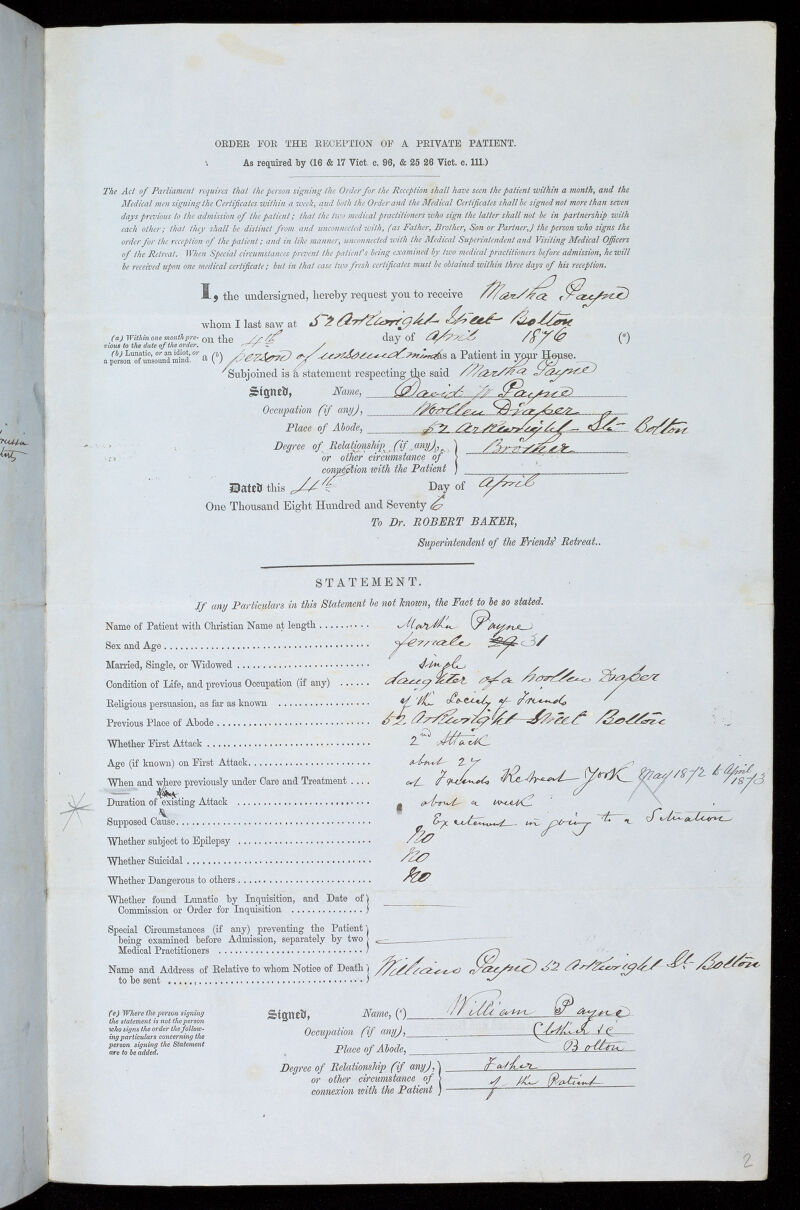 ORDER FOR THE RECEPTION OF A PRIVATE PATIENT.
As required by (16 & 17 Vict. c. 96, & 25 26 Vict. c. 111.)
The Act of Parliament requires that the person signing the Order for the Reception shall have seen the patient within a month, and the
Medical men signing the Certificates within a week, and both the Order and the Medical Certificates shall be signed not more than seven
days previous to the admission of the patient; that the two medical practitioners who sign the latter shall not be in partnership with
each other; that they shall be distinct from and unconnected with, (as Father, Brother, Son or Partner,) the person who signs the
order for the reception of the patient; and in like manner, unconnected with the Medical Superintendent and Visiting Medical Officers
of the Retreat. When Special circumstances prevent the patient's being examined by two medical practitioners before admission, he will
be received upon one medical certificate; but in that case two fresh certificates must be obtained within three days of his reception.
I, the undersigned, hereby request you to receive Martha Payne
whom I last saw at 52 Arkwright Street Bolton
(a) Within one month pre-
vious to the date of the order.
(b) Lunatic, or an idiot, or
a person of unsound mind.
on the 4th day of April 1876 (a)
a (b) person of unsound mind as a Patient in your House.
Subjoined is a statement respecting the said Martha Payne
Signed, Name, David W Payne
Occupation (if any), Woollen Draper
Place of Abode, 52 Arkwright St. Bolton
Degree of Relationship (if any), Brother
or other circumstance of
connection with the Patient
Dated this 4th Day of April
One Thousand Eight Hundred and Seventy 6
To Dr. ROBERT BAKER,
Superintendent of the Friends' Retreat..
STATEMENT.
If any Particulars in this Statement be not known, the Fact to be so stated.
Name of Patient with Christian Name at length .......... Martha Payne
Sex and Age .......... female 29 31
Married, Single, or Widowed .......... Single
Condition of Life, and previous Occupation (if any) ...... daughter of a Woollen Draper
Religious persuasion, as far as known .......... of the Society of Friends
Previous Place of Abode .......... 52 Arkwright Street Bolton
Whether First Attack .......... 2nd Attack
Age (if known) on First Attack .......... about 27
When and where previously under Care and Treatment .... at Friends Retreat York May 1872 to April 1873
Duration of existing Attack .......... about a week
Supposed Cause .......... Excitement in going to a Situation
Whether subject to Epilepsy .......... No
Whether Suicidal .......... No
Whether Dangerous to others .......... No
Whether found Lunatic by Inquisition, and Date of
Commission or Order for Inquisition ..........
Special Circumstances (if any) preventing the Patient
being examined before Admission, separately by two
Medical Practitioners ..........
Name and Address of Relative to whom Notice of Death
to be sent .......... William Payne 52 Arkwright St. Bolton
(c) Where the person signing
the statement is not the person
who signs the order the follow-
ing particulars concerning the
person signing the Statement
are to be added.
Signed, Name, (c) William Payne
Occupation (if any), Clothier &c
Place of Abode, Bolton
Degree of Relationship (if any), Father
or other circumstance of of the Patient
connexion with the Patient
2